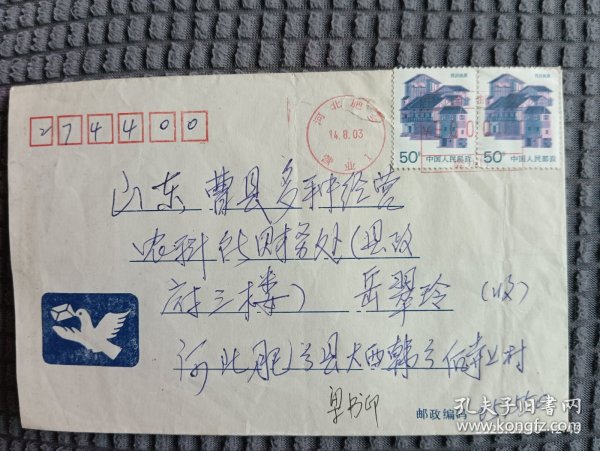 274400
河北肥乡
14.8.03
营业 1
50分 中国人民邮政
50分 中国人民邮政
山东曹县多种经营
农科所财务处(县政
府三楼) 岳翠玲 (收)
河北肥乡县大西韩乡 村
邮政编码
孔夫子旧书网
www.kongfz.com